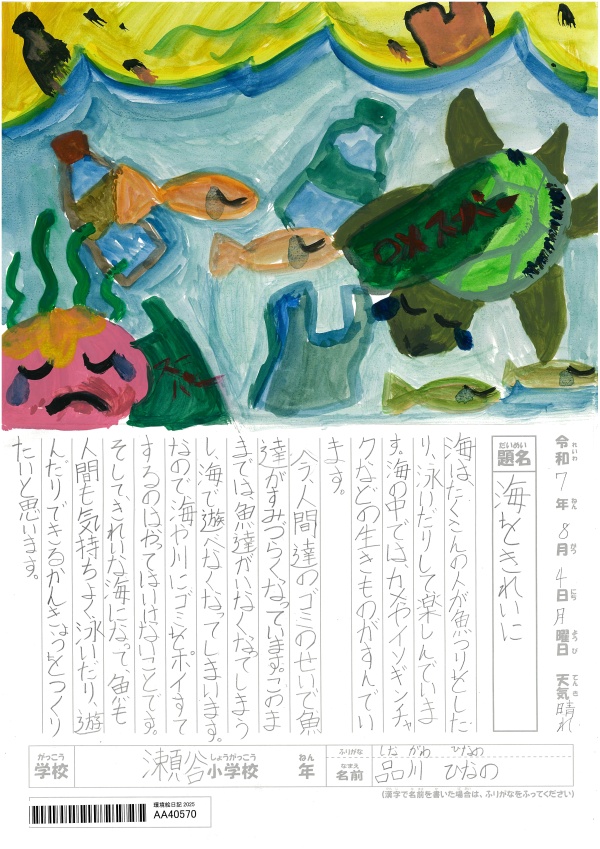 令和7年8月4日月曜日 天気晴れ
れいわ ねん がつ にち ようび てんき
だいめい
題名 海をきれいに
海はたくさんの人が魚つりをした
り、泳いだりして楽しんでいま
す。海の中では、カメやイソギンチャ
クなどの生きものがすんでい
ます。
今、人間達のゴミのせいで魚
達がすみづらくなっています。このま
までは、魚達がいなくなってしまう
し、海で遊べなくなってしまいます。
なので海や川にゴミをポイすて
するのはやってはいけないことです。
そして、きれいな海になって、魚も
人間も気持ちよく泳いだり、遊
んだりできるかんきょうをつくり
たいと思います。
がっこう しょうがっこう ねん
学校 瀬谷小学校 年
ふりがな しながわ ひなの
なまえ
名前 品川 ひなの
(漢字で名前を書いた場合は、ふりがなをふってください)
環境絵日記 2025
AA40570